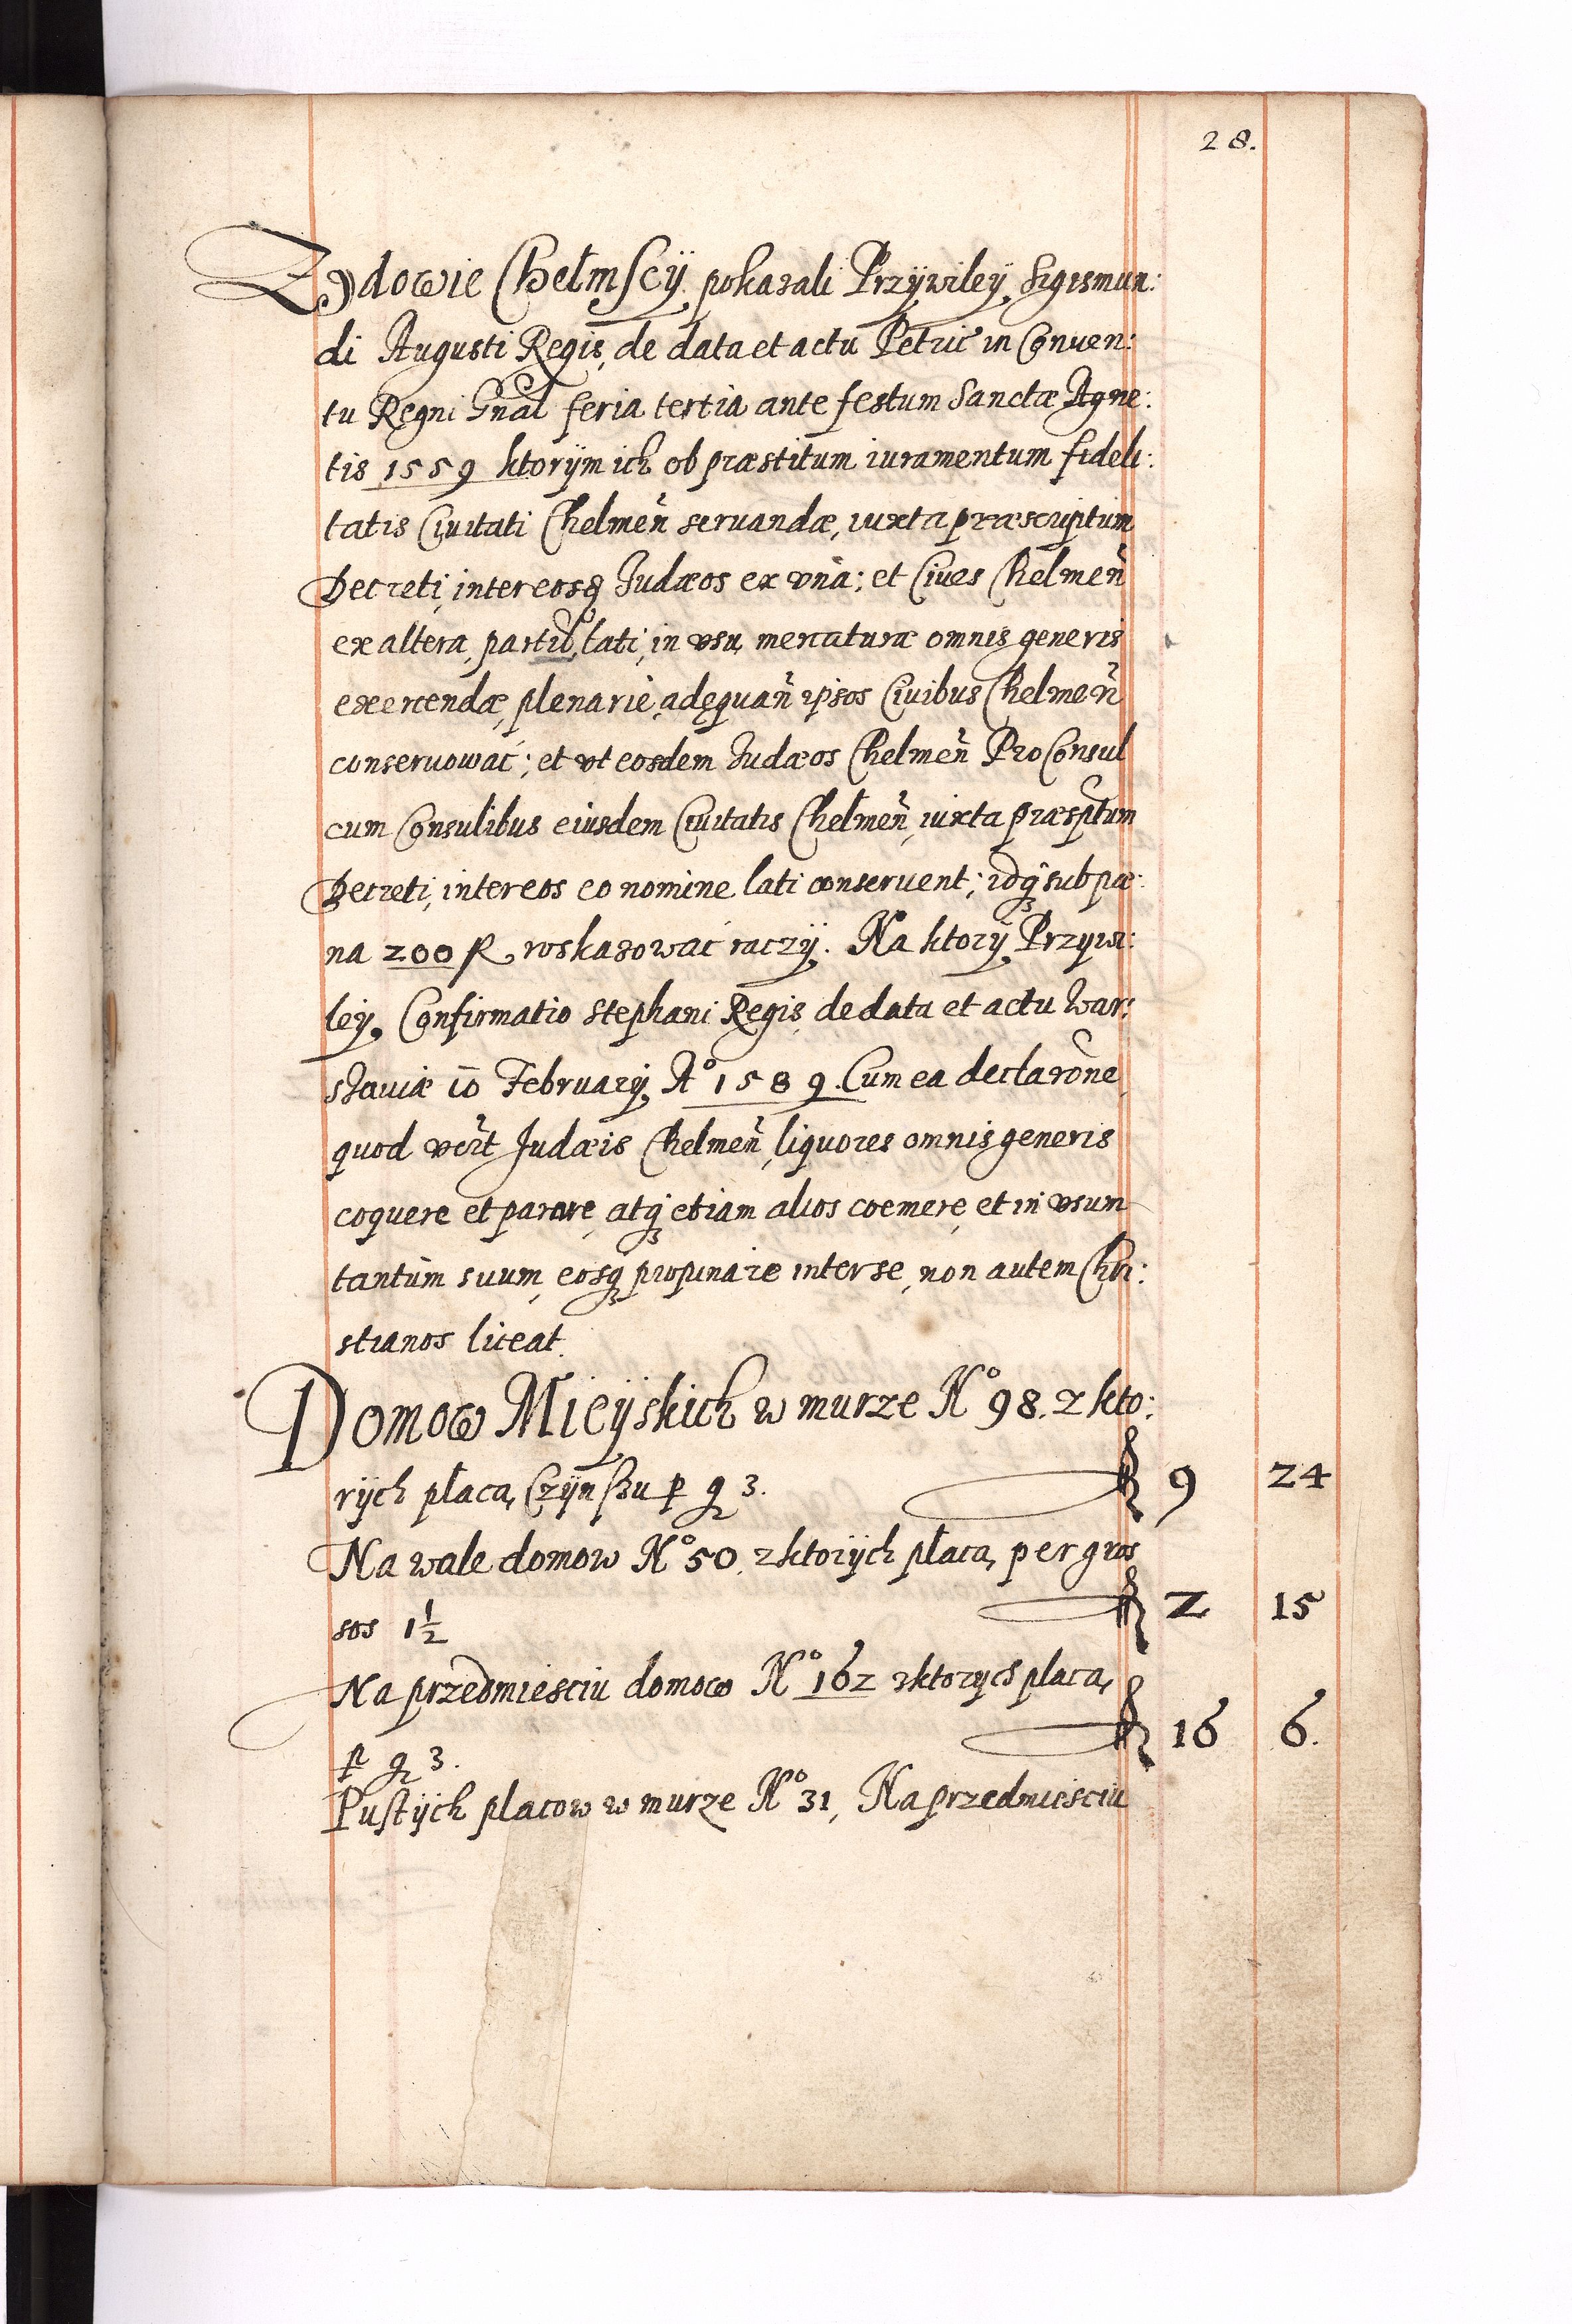 28.
Zydowie Chełmscÿ pokazali Przÿwileÿ Sigismun:
di Augusti Regis, de data et actu Petric in Conuen:
tu Regni Gnal feria tertia ante festum Sanctæ Agne:
tis 1559 ktorÿm ich ob præstitum iuramentum fideli:
tatis Ciuitati Chelmen̄ seruandæ, iuxta præscriptum
Decreti, inter eosq Judæos ex vna; et Ciues Chelmen̄
ex altera, partib, lati, in vsu mercaturæ omnis generis
exercendæ, plenariè, adęquan̄ ipsos Ciuibus Chelmen̄
conseruowac; et vt eosdem Judæos Chelmen̄ ProConsul
cum Consulibus eiusdem Ciuitatis Chelmen̄, iuxta præsptum
Decreti, inter eos eo nomine lati conseruent; idq sub pæ:
na 200 roskazowac raczÿ. Na ktorÿ Przywi:
ley, Confirmatio Stephani Regis de data et actu War:
szauiæ 10 February, Aº 1589. Cum ea declarōne
quod Judæis Chelmen̄, liquores omnis generis
coquere et parare, atq etiam alios coemere, et in vsum
tantùm suum, eosq propinare inter se, non autem Chri:
stianos liceat.
Domow Mieÿskich w murze Nº 98. z kto:
rÿch płacą, Czÿnszu p g 3. 9 24
Na wale domow Nº 50. z ktorÿch płacą, per gros
sos 1½ 2 15
Na przedmiesciu domow Nº 162 z ktorych płacą,
p g 3. 16 6.
Pustÿch placow w murze Nº 31, Na przedmiesciu